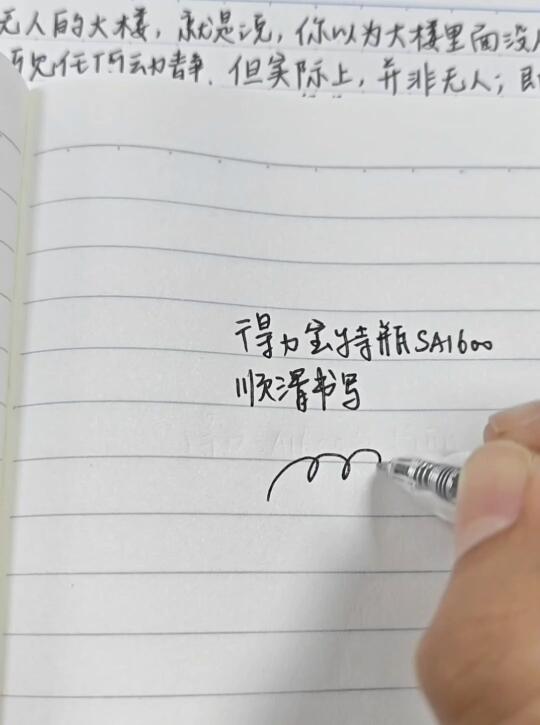 无人的大楼，就是说，你以为大楼里面没
任何动静．但实际上，并非无人；即
得力宝特瓶SA1600
顺滑书写